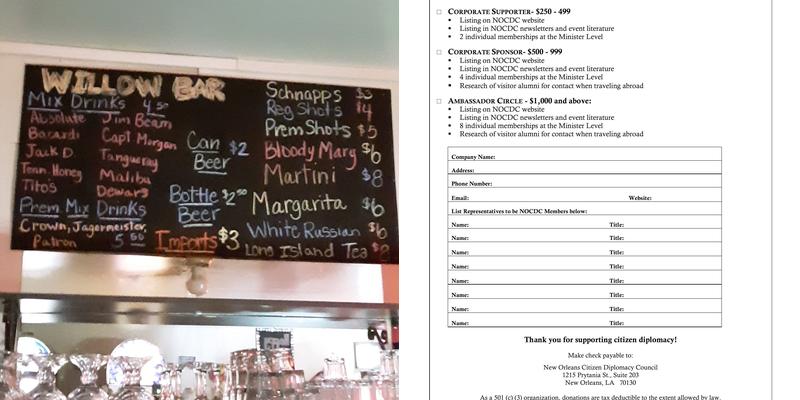 WILLOW BAR
Mix Drinks 4.50
Absolute Jim Beam
Bacardi Capt Morgan
Jack D. Tanguray
Tenn. Honey Malibu
Tito's Dewars
Prem Mix Drinks
Crown, Jagermeister,
Patron 5.50
Can Beer $2
Bottle Beer $2.50
Imports $3
Schnapps $3
Reg Shots $4
Prem Shots $5
Bloody Mary $6
Martini $8
Margarita $6
White Russian $6
Long Island Tea $8
□ CORPORATE SUPPORTER- $250 - 499
• Listing on NOCDC website
• Listing in NOCDC newsletters and event literature
• 2 individual memberships at the Minister Level
□ CORPORATE SPONSOR- $500 - 999
• Listing on NOCDC website
• Listing in NOCDC newsletters and event literature
• 4 individual memberships at the Minister Level
• Research of visitor alumni for contact when traveling abroad
□ AMBASSADOR CIRCLE - $1,000 and above:
• Listing on NOCDC website
• Listing in NOCDC newsletters and event literature
• 8 individual memberships at the Minister Level
• Research of visitor alumni for contact when traveling abroad
Company Name:
Address:
Phone Number:
Email: Website:
List Representatives to be NOCDC Members below:
Name: Title:
Name: Title:
Name: Title:
Name: Title:
Name: Title:
Name: Title:
Name: Title:
Name: Title:
Thank you for supporting citizen diplomacy!
Make check payable to:
New Orleans Citizen Diplomacy Council
1215 Prytania St., Suite 203
New Orleans, LA 70130
As a 501 (c) (3) organization, donations are tax deductible to the extent allowed by law.